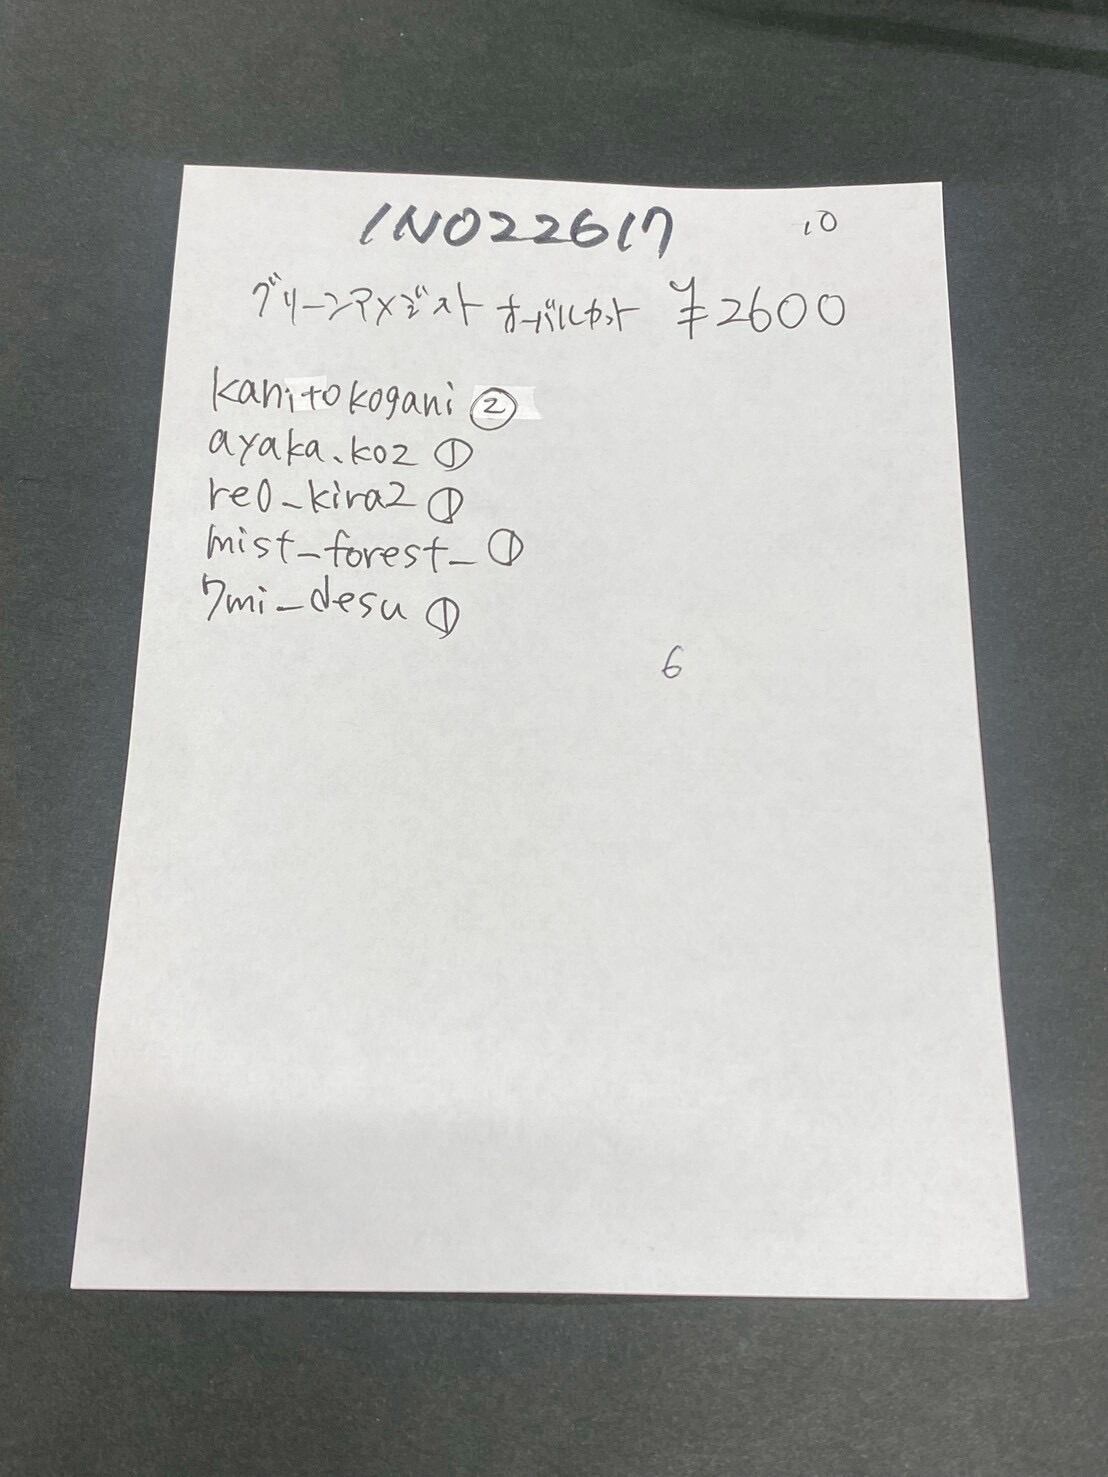 INO22617 10
グリーンアメジスト オーバルカット ¥2600
kanitokogani ②
ayaka.koz ①
re0_kira2 ①
mist_forest_ ①
7mi_desu ①
6